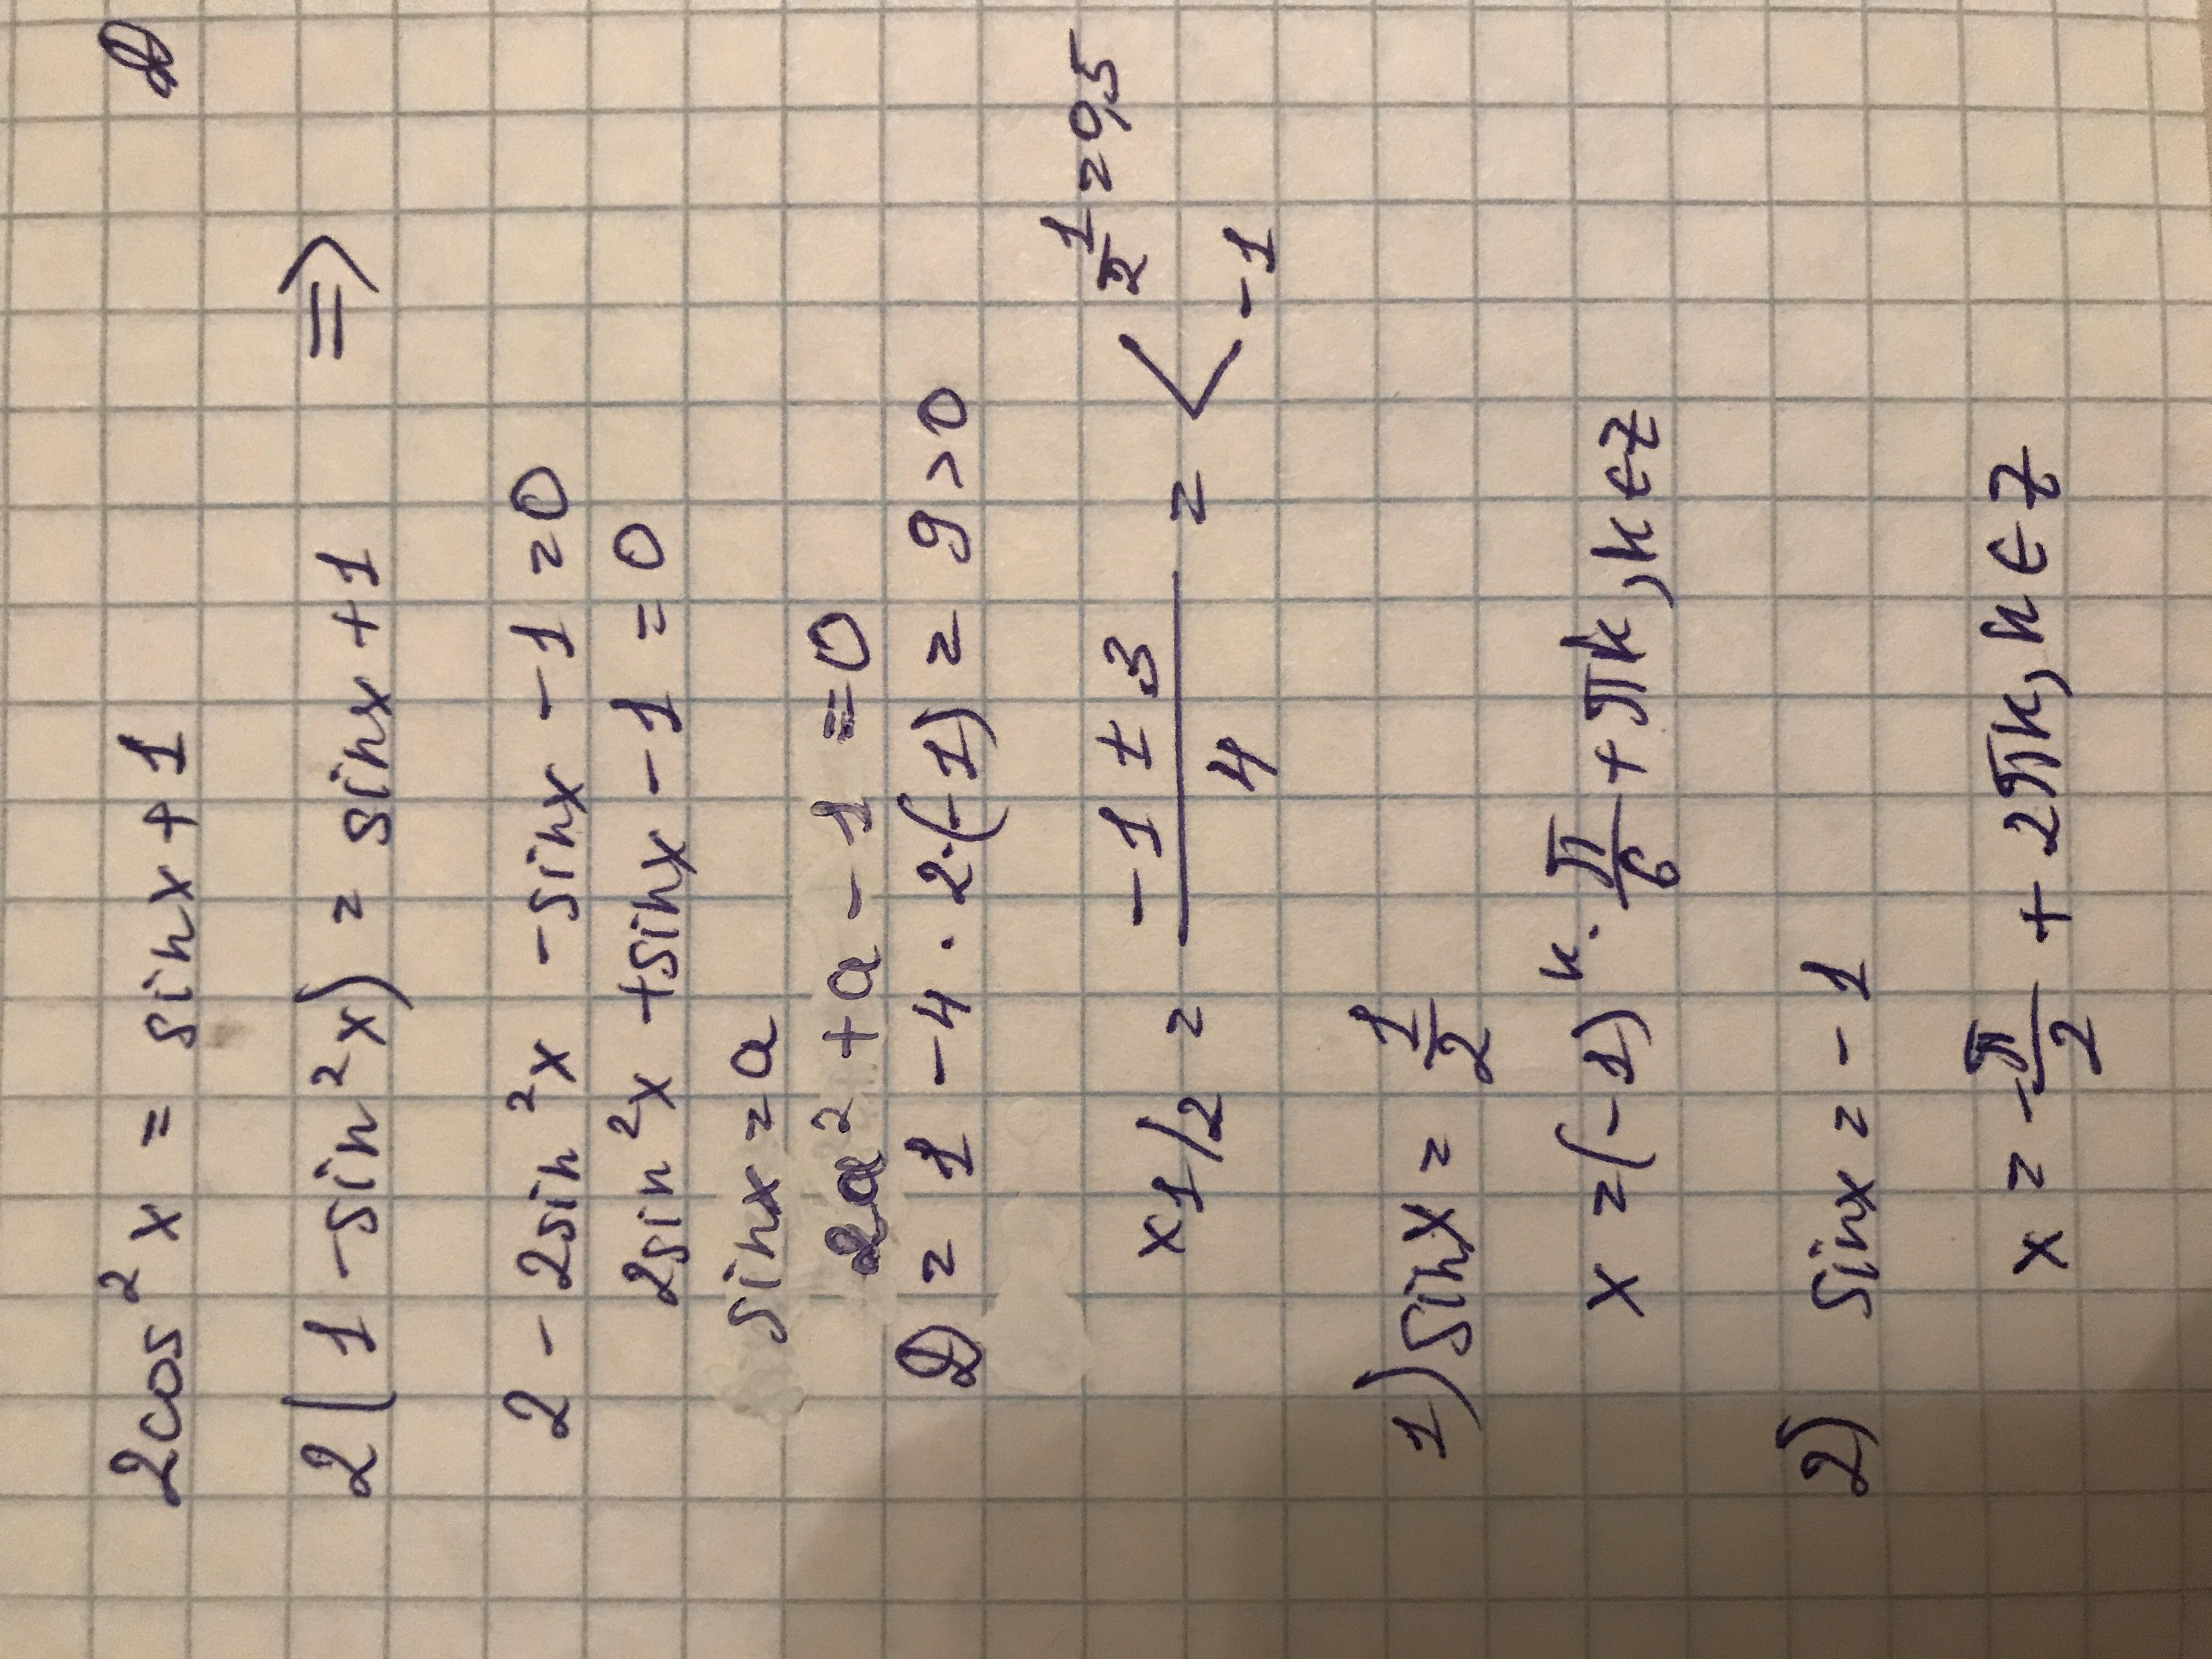 2cos²x = sinx + 1
2(1 - sin²x) = sinx + 1 =>
2 - 2sin²x - sinx - 1 = 0
2sin²x + sinx - 1 = 0
sinx = a
2a² + a - 1 = 0
D = 1 - 4 · 2·(-1) = 9 > 0
x1/2 = (-1 ± 3)/4 = < 1/2 = 0,5
-1
1) sinx = 1/2
x = (-1)^k · π/6 + πk, k ∈ Z
2) sinx = -1
x = -π/2 + 2πk, k ∈ Z